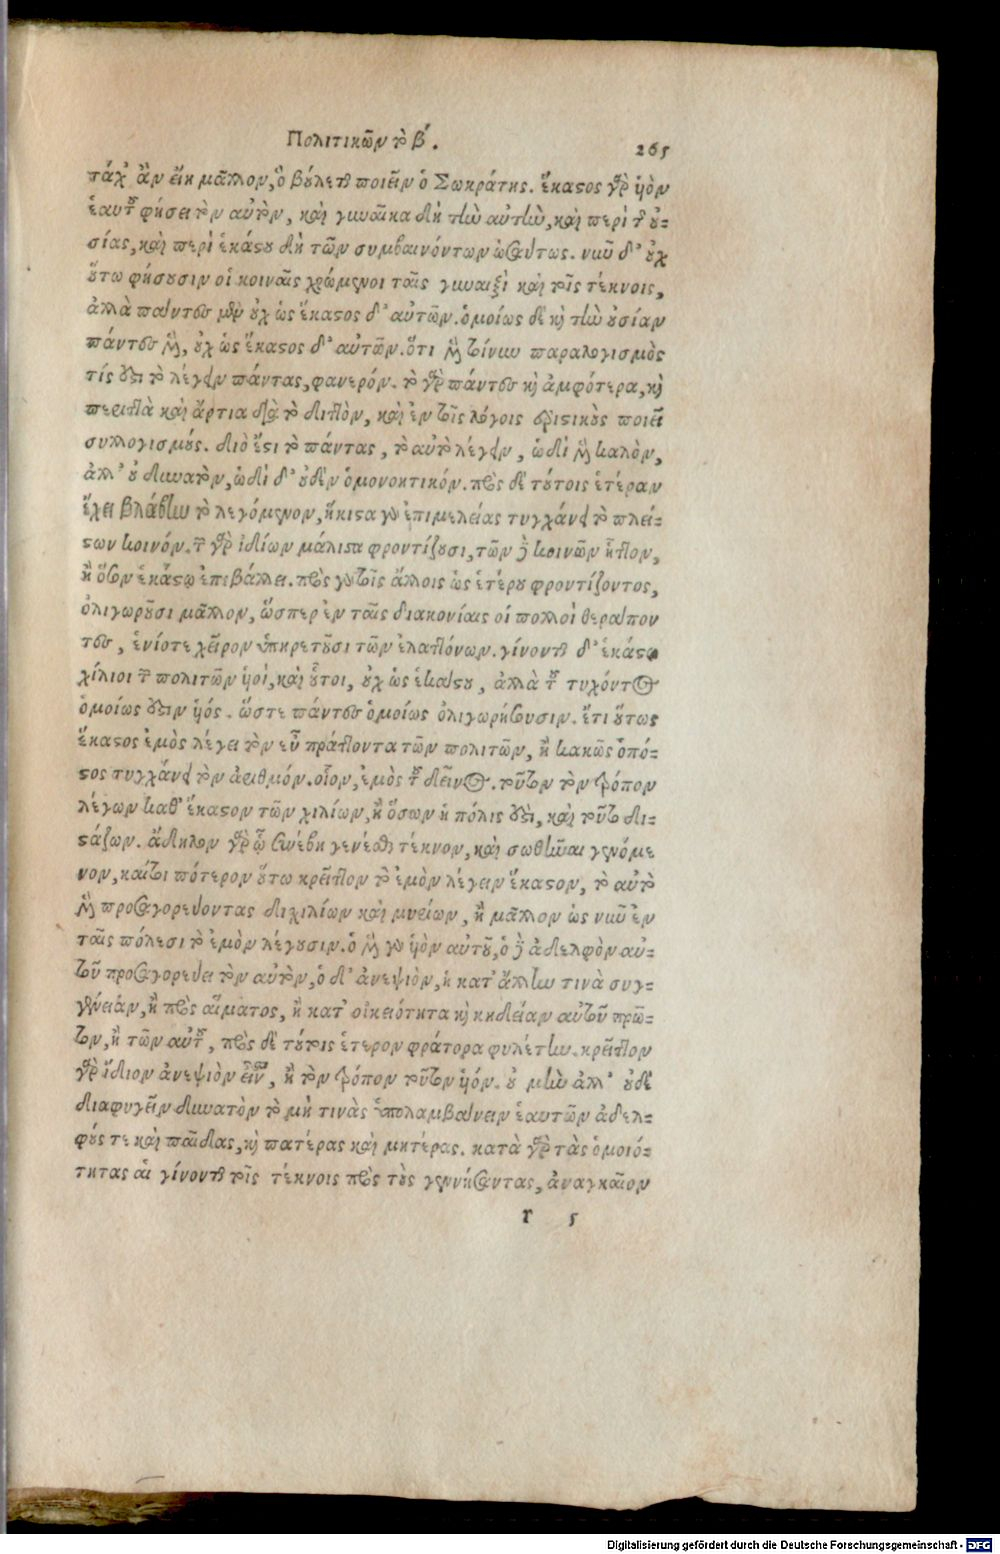 Πολιτικῶν τὸ β΄.
265
τάχ' ἂν εἴη μᾶλλον, ὃ βούλεται ποιεῖν ὁ Σωκράτης. ἕκαστος γὰρ υἱὸν
ἑαυτοῦ φήσει τὸν αὐτὸν, καὶ γυναῖκα δὴ τὴν αὐτὴν, καὶ περὶ τῆς οὐ-
σίας, καὶ περὶ ἑκάστου δὴ τῶν συμβαινόντων ὡσαύτως. νῦν δ' οὐχ
οὕτω φήσουσιν οἱ κοιναῖς χρώμενοι ταῖς γυναιξὶ καὶ τοῖς τέκνοις,
ἀλλὰ πάντες μὲν οὐχ ὡς ἕκαστος δ' αὐτῶν. ὁμοίως δὲ καὶ τὴν οὐσίαν
πάντες μὲν, οὐχ ὡς ἕκαστος δ' αὐτῶν. ὅτι μὲν τοίνυν παραλογισμὸς
τίς ἐστι τὸ λέγειν πάντας, φανερόν. τὸ γὰρ πάντες καὶ ἀμφότερα, καὶ
περιττὰ καὶ ἄρτια διὰ τὸ διττὸν, καὶ ἐν τοῖς λόγοις ἐριστικοὺς ποιεῖ
συλλογισμούς. διὸ ἔστι τὸ πάντας, τὸ αὐτὸ λέγειν, ὡδὶ μὲν καλὸν,
ἀλλ' οὐ δυνατὸν, ὡδὶ δ' οὐδὲν ὁμονοητικόν. πρὸς δὲ τούτοις ἑτέραν
ἔχει βλάβην τὸ λεγόμενον, ἥκιστα γὰρ ἐπιμελείας τυγχάνει τὸ πλεί-
στων κοινόν. τῶν γὰρ ἰδίων μάλιστα φροντίζουσι, τῶν δὲ κοινῶν ἧττον,
ἢ ὅσον ἑκάστῳ ἐπιβάλλει. πρὸς γὰρ τοῖς ἄλλοις ὡς ἑτέρου φροντίζοντος,
ὀλιγωροῦσι μᾶλλον, ὥσπερ ἐν ταῖς διακονίαις οἱ πολλοὶ θεράπον
τες, ἐνίοτε χεῖρον ὑπηρετοῦσι τῶν ἐλαττόνων. γίνονται δ' ἑκάστῳ
χίλιοι τῶν πολιτῶν υἱοὶ, καὶ οὗτοι, οὐχ ὡς ἑκάστου, ἀλλὰ τοῦ τυχόντος
ὁμοίως ἐστὶν υἱός. ὥστε πάντες ὁμοίως ὀλιγωρήσουσιν. ἔτι οὕτως
ἕκαστος ἐμὸς λέγει τὸν εὖ πράττοντα τῶν πολιτῶν, ἢ κακῶς ὁπό-
στος τυγχάνει τὸν ἀριθμόν. οἷον, ἐμὸς τοῦ δεῖνος. τοῦτον τὸν τρόπον
λέγων καθ' ἕκαστον τῶν χιλίων, ἢ ὅσων ἡ πόλις ἐστὶ, καὶ τοῦτο δι-
στάζων. ἄδηλον γὰρ ᾧ συνέβη γενέσθαι τέκνον, καὶ σωθῆναι γενόμε
νον, καίτοι πότερον οὕτω κρεῖττον τὸ ἐμὸν λέγειν ἕκαστον, τὸ αὐτὸ
μὲν προσαγορεύοντας δισχιλίων καὶ μυρίων, ἢ μᾶλλον ὡς νῦν ἐν
ταῖς πόλεσι τὸ ἐμὸν λέγουσιν. ὁ μὲν γὰρ υἱὸν αὑτοῦ, ὁ δὲ ἀδελφὸν αὑ-
τοῦ προσαγορεύει τὸν αὐτὸν, ὁ δ' ἀνεψιὸν, ἢ κατ' ἄλλην τινὰ συγ-
γένειαν, ἢ πρὸς αἵματος, ἢ κατ' οἰκειότητα καὶ κηδείαν αὐτοῦ πρῶ-
τον, ἢ τῶν αὐτοῦ, πρὸς δὲ τούτοις ἕτερον φράτορα φυλέτην. κρεῖττον
γὰρ ἴδιον ἀνεψιὸν εἶναι, ἢ τὸν τρόπον τοῦτον υἱόν. οὐ μὴν ἀλλ' οὐδὲ
διαφυγεῖν δυνατὸν τὸ μή τινας ὑπολαμβάνειν ἑαυτῶν ἀδελ-
φούς τε καὶ παῖδας, καὶ πατέρας καὶ μητέρας. κατὰ γὰρ τὰς ὁμοιό-
τητας αἳ γίνονται τοῖς τέκνοις πρὸς τοὺς γεννήσαντας, ἀναγκαῖον
r 5
Digitalisierung gefördert durch die Deutsche Forschungsgemeinschaft - DFG